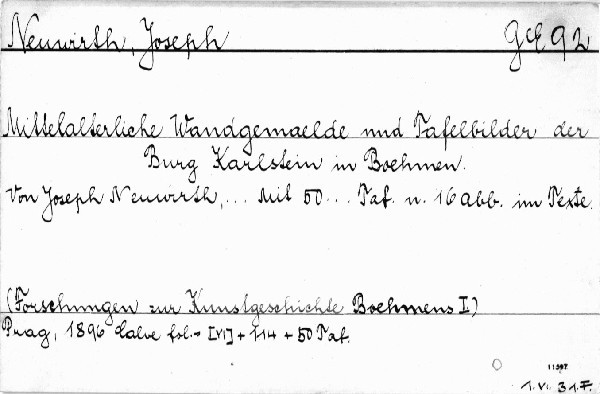 Neuwirth, Joseph GcE 92
Mittelalterliche Wandgemaelde und Tafelbilder der
Burg Karlstein in Boehmen.
Von Joseph Neuwirth,... Mit 50... Taf. u. 16 abb. im Texte.
(Forschungen zur Kunstgeschichte Boehmens I)
Prag, 1896 Calve fol.- [VI] + 114 + 50 Taf.
11597
1.VI.31.F.